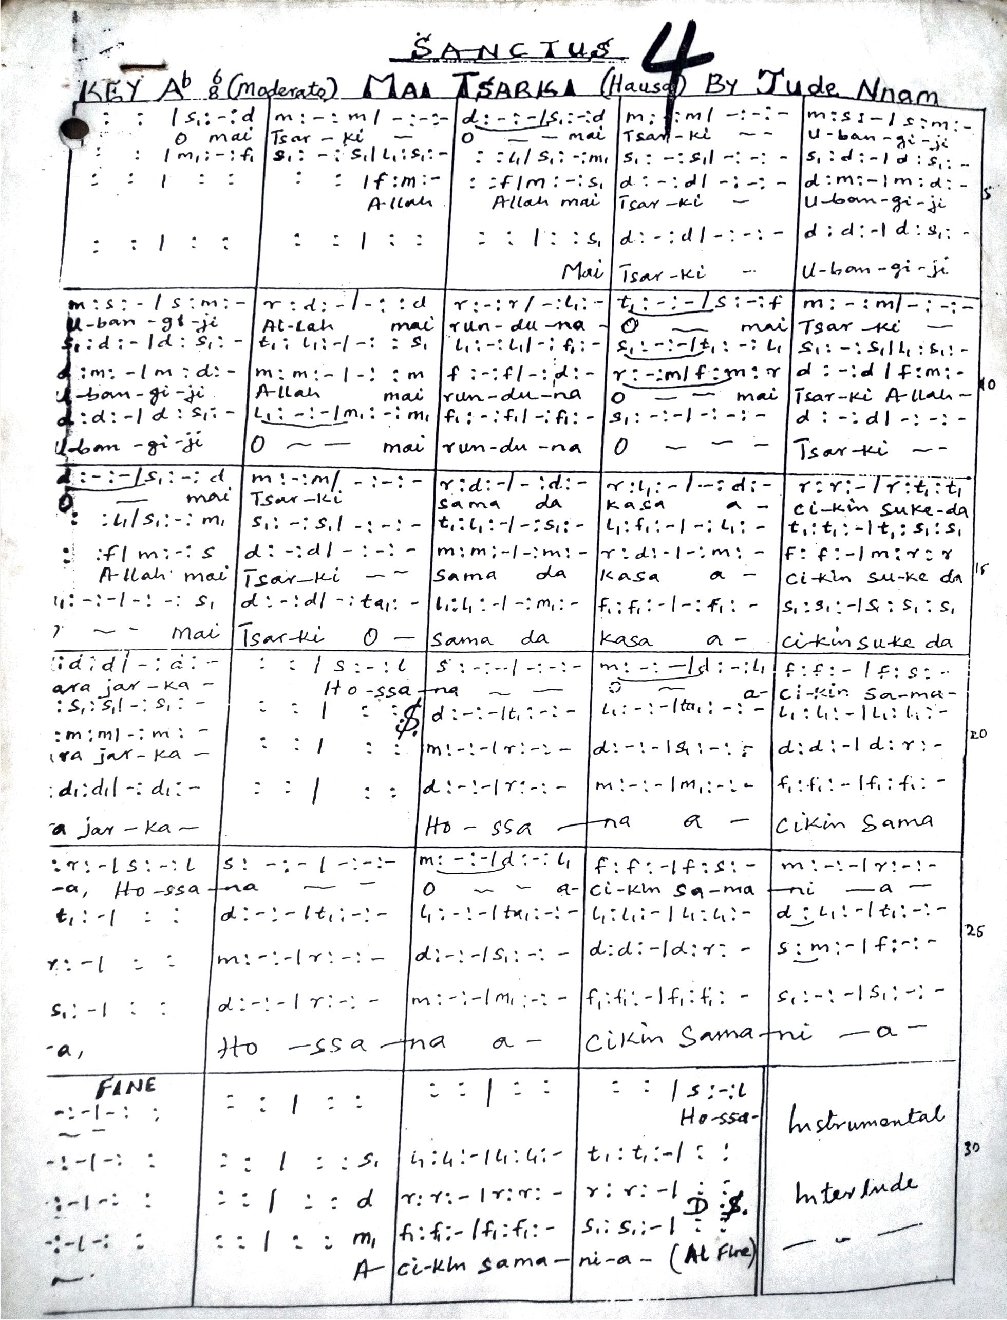 SANCTUS 4
KEY Ab 6/8 (Moderato) MAI TSARKI (Hausa) By Jude Nnam
: : | s₁:-:d | m:-:m | -:-:- | d:-:-|s₁:-:d | m:-:m | -:-:- | m:s:s-|s:m:-
O mai Tsar-ki — O — mai Tsar-ki — - U-ban-gi-ji
: : | m₁:-:f₁ | s₁:-:s₁|l₁:s₁:- | : :l₁|s₁:-:m₁ | s₁:-:s₁|-:-:- | s₁:d:-|d:s₁:-
: : | : : | : : |f:m:- | : :f|m:-:s₁ | d:-:d|-:-:- | d:m:-|m:d:- 5
Allah Allah mai Tsar-ki — U-ban-gi-ji
: : | : : | : : | : : | : : | : :s₁ | d:-:d|-:-:- | d:d:-|d:s₁:-
Mai Tsar-ki - U-ban-gi-ji
m:s:-|s:m:- | r:d:-|-: :d | r:-:r|-:l₁:- | t₁:-:-|s:-:f | m:-:m|-:-:-
U-ban-gi-ji Al-Lah mai run-du-na- O — mai Tsar-ki —
s₁:d:-|d:s₁:- | t₁:l₁:-|-: :s₁ | l₁:-:l₁|-:f₁:- | s₁:-:-|t₁:-:l₁ | s₁:-:s₁|l₁:s₁:-
d:m:-|m:d:- | m:m:-|-: :m | f:-:f|-:d:- | r:-:m|f:m:r | d:-:d|f:m:- 10
U-ban-gi-ji Allah mai run-du-na O — — mai Tsar-ki Allah-
d:d:-|d:s₁:- | l₁:-:-|m₁:-:m₁ | f₁:-:f₁|-:f₁:- | s₁:-:-|-:-:- | d:-:d|-:-:-
U-ban-gi-ji O — — mai run-du-na O — - - Tsar-ki --
d:-:-|s₁:-:d | m:-:m|-:-:- | r:d:-|-:d:- | r:l₁:-|-:d:- | r:r:-|r:t₁:t₁
O — mai Tsar-ki sama da kasa a - ci-kin suke-da
: :l₁|s₁:-:m₁ | s₁:-:s₁|-:-:- | t₁:l₁:-|-:s₁:- | l₁:f₁:-|-:l₁:- | t₁:t₁:-|t₁:s₁:s₁
: :f|m:-:s | d:-:d|-:-:- | m:m:-|-:m:- | r:d:-|-:m:- | f:f:-|m:r:r 15
Allah mai Tsar-ki -- sama da kasa a - ci-kin su-ke da
l₁:-:-|-:-:s₁ | d:-:d|-:ta₁:- | l₁:l₁:-|-:m₁:- | f₁:f₁:-|-:f₁:- | s₁:s₁:-|s₁:s₁:s₁
-- mai Tsar-ki O - sama da kasa a - cikin suke da
:d:d|-:d:- | : : |s:-:l | s:-:-|-:-:- | m:-:-|d:-:l₁ | f:f:-|f:s:-
ara jar-ka- Ho-ssa-na — — O — a- ci-kin sa-ma-
:s₁:s₁|-:s₁:- | : : | : : $. | d:-:-|t₁:-:- | l₁:-:-|ta₁:-:- | l₁:l₁:-|l₁:l₁:-
:m:m|-:m:- | : : | : : | m:-:-|r:-:- | d:-:-|s₁:-:- | d:d:-|d:r:- 20
ra jar-ka-
:d₁:d₁|-:d₁:- | : : | : : | d:-:-|r:-:- | m:-:-|m₁:-:- | f₁:f₁:-|f₁:f₁:-
a jar-ka- Ho-ssa —na a - cikin sama
:r:-|s:-:l | s:-:-|-:-:- | m:-:-|d:-:l₁ | f:f:-|f:s:- | m:-:-|r:-:-
-a, Ho-ssa-na — - O - - a- ci-kin sa-ma-ni -a-
t₁:-| : : | d:-:-|t₁:-:- | l₁:-:-|ta₁:-:- | l₁:l₁:-|l₁:l₁:- | d:l₁:-|t₁:-:- 25
r:-| : : | m:-:-|r:-:- | d:-:-|s₁:-:- | d:d:-|d:r:- | s:m:-|f:-:-
s₁:-| : : | d:-:-|r:-:- | m:-:-|m₁:-:- | f₁:f₁:-|f₁:f₁:- | s₁:-:-|s₁:-:-
-a, Ho -ssa-na a - cikin sama-ni -a-
FINE
-:-|-: : | : : | : : | : : | : : | : : |s:-:l
Ho-ssa-
Instrumental
-:-|-: : | : : | : :s₁ | l₁:l₁:-|l₁:l₁:- | t₁:t₁:-| : : 30
-:-|-: : | : : | : :d | r:r:-|r:r:- | r:r:-| : : D $.
Interlude
-:-|-: : | : : | : :m₁ | f₁:f₁:-|f₁:f₁:- | s₁:s₁:-| : :
A- ci-kin sama-ni-a- (Al Fine)